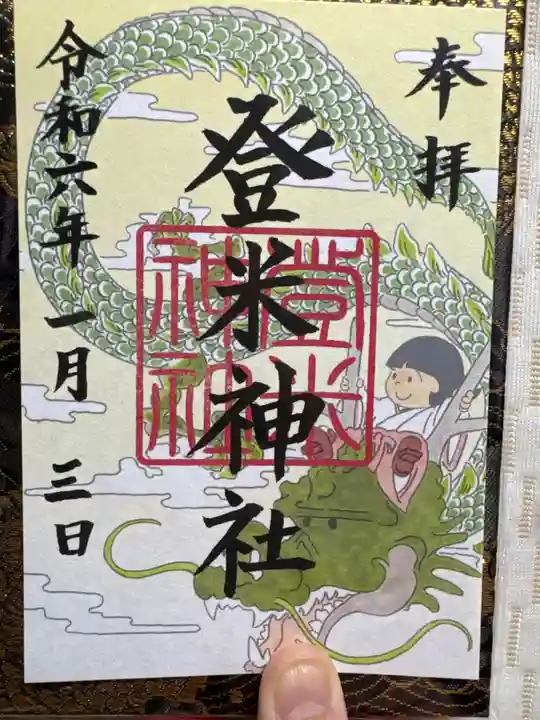 奉拝
登米神社
登米
神社
令和六年一月三日